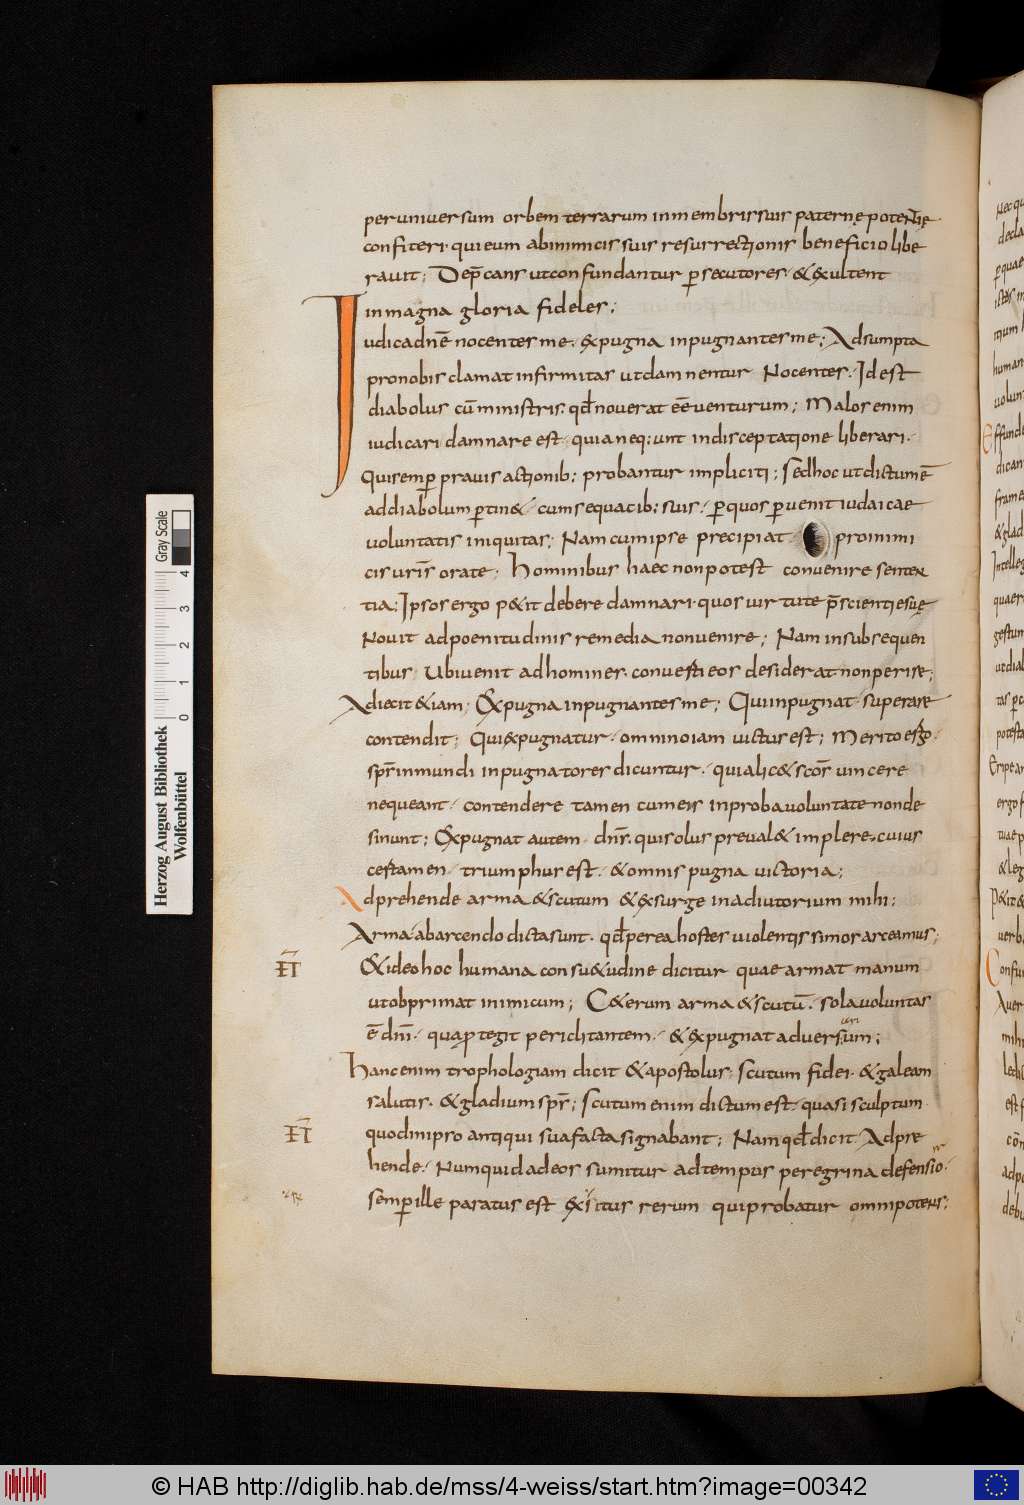 per uniuersum orbem terrarum in membris suis paternę potentię
confiteri· qui eum ab inimicis suis resurrectionis beneficio libe
rauit; Dep̄cans ut confundantur p̱secutores· & exultent
in magna gloria fideles;
Iudica dn̄e nocentes me· expugna inpugnantes me; Adsumpta
pro nobis clamat infirmitas ut damnentur Nocentes· Id est
diabolus cū ministris· qđ nouerat eē uenturum; Malos enim
iudicari damnare est· quia neq; unt in disceptatione liberari·
Qui semp̱ prauis actionib; probantur impliciti; Sed hoc ut dictum ē
ad diabolum p̱tin&· cum sequacib; suis· p̱ quos p̱uenit iudaicae
uoluntatis iniquitas; Nam cum ipse precipiat· pro inimi
cis ur̄is orate· Hominibus haec non potest conuenire senten
tia; Ipsos ergo p&it debere damnari· quos uirtute p̄scientię suę
Nouit ad poenitudinis remedia non uenire; Nam in subsequen
tibus Ubi uenit ad homines· conuerti eos desiderat non perire;
Adiecit &iam; Expugna inpugnantes me; Qui inpugnat superare
contendit; Qui expugnatur· omnino iam uictus est; Merito ergo·
spr̄ inmundi inpugnatores dicuntur· quia lic& scōs uincere
nequeant· contendere tamen cum eis inproba uoluntate non de
sinunt; Expugnat autem dn̄s· qui solus preual& implere· cuius
certamen· triumphus est· & omnis pugna uictoria;
Adprehende arma & scutum & exsurge in adiutorium mihi;
Arma ab arcendo dicta sunt· qđ per ea hostes uiolentis simos arceamus;
& ideo hoc humana consu&udine dicitur quae armat manum
ut obprimat inimicum; C&erum arma & scutū· sola uoluntas
ē dn̄i· qua p̱tegit periclitantem· & expugnat aduersum;
Hanc enim trophologiam dicit & apostolus· scutum fidei· & galeam
salutis· & gladium spr̄; Scutum enim dictum est· quasi sculptum·
quod in ipro antiqui sua facta signabant; Nam qđ dicit Adpre
hende· Numquid ad eos sumitur ad tempus peregrina defensio·
semp̱ ille paratus est exscitus rerum qui probatur omnipotens;
Herzog August Bibliothek
Wolfenbüttel
0 1 2 3 4
Gray Scale
© HAB http://diglib.hab.de/mss/4-weiss/start.htm?image=00342